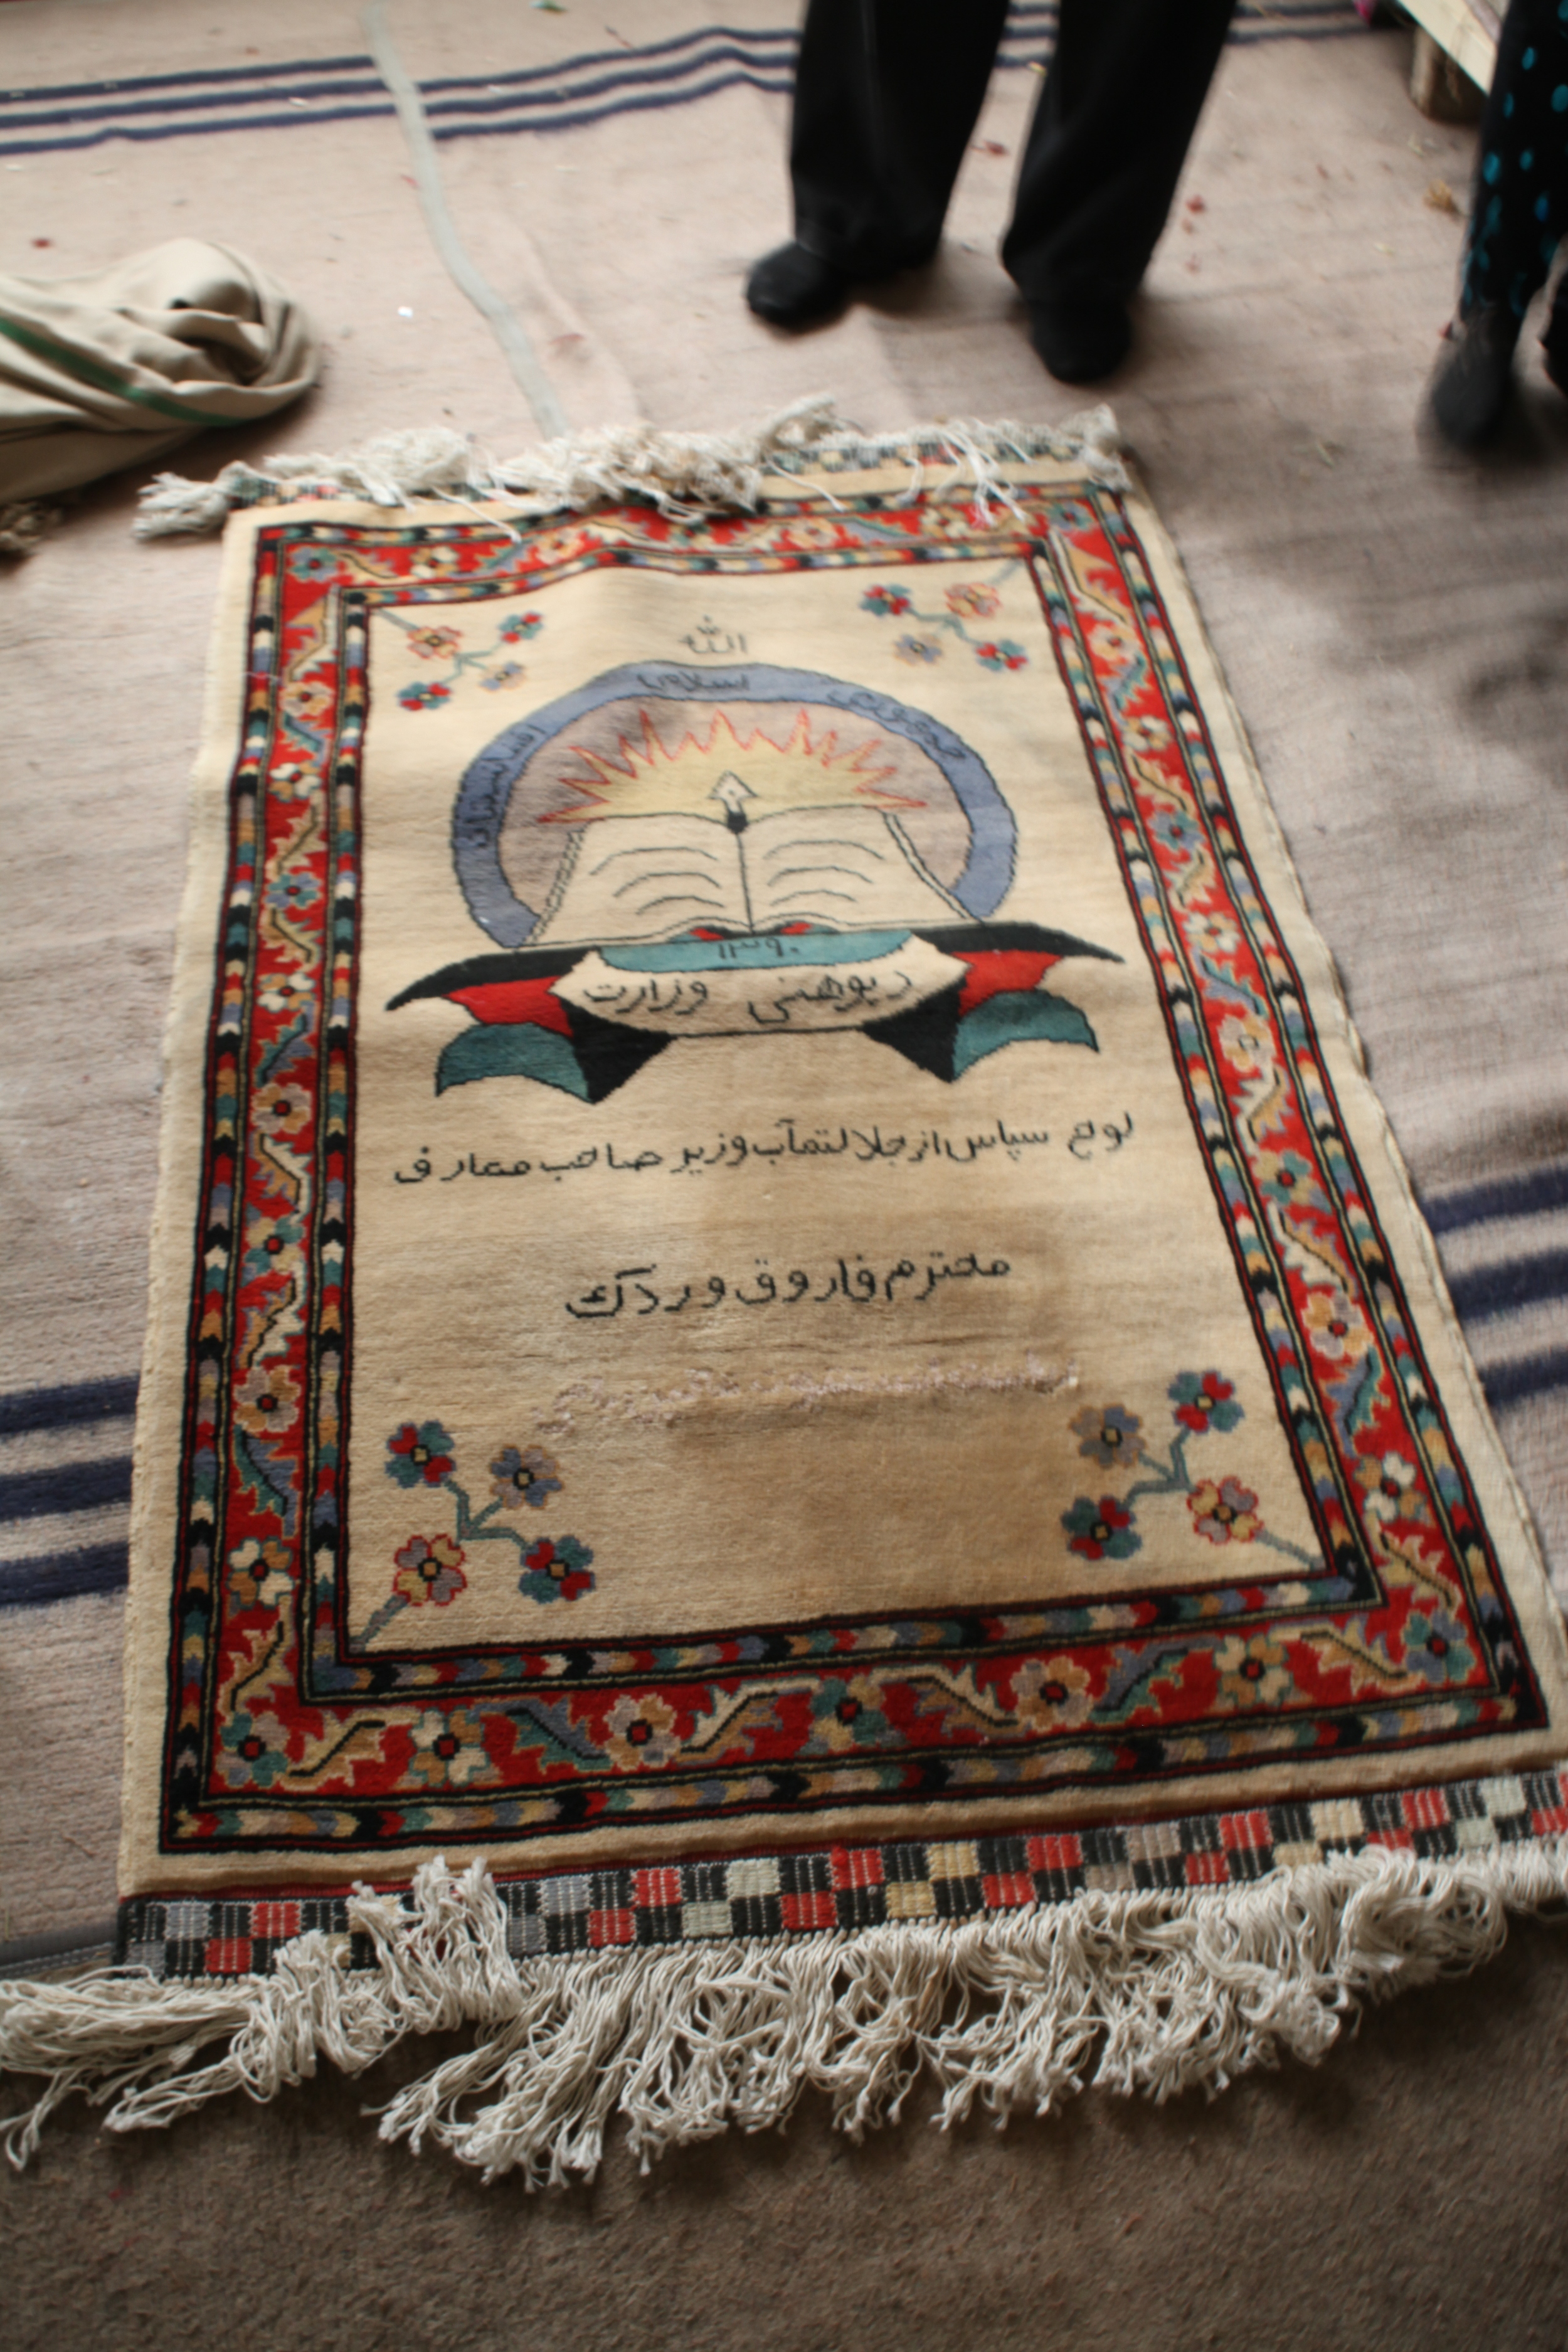 الله
اسلامی
افغانستان
۱۳۹۰
د پوهنی وزارت
لوح سپاس از جلالتمآب وزیر صاحب معارف
محترم فاروق وردک